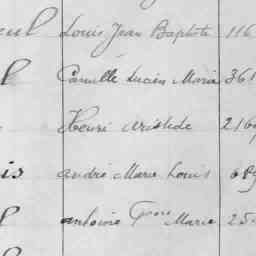 Louis Jean Baptiste 116
l Camille Lucien Marie 361
Henri Aristide 216
is andré Marie Louis 689
l antoine Marie 25